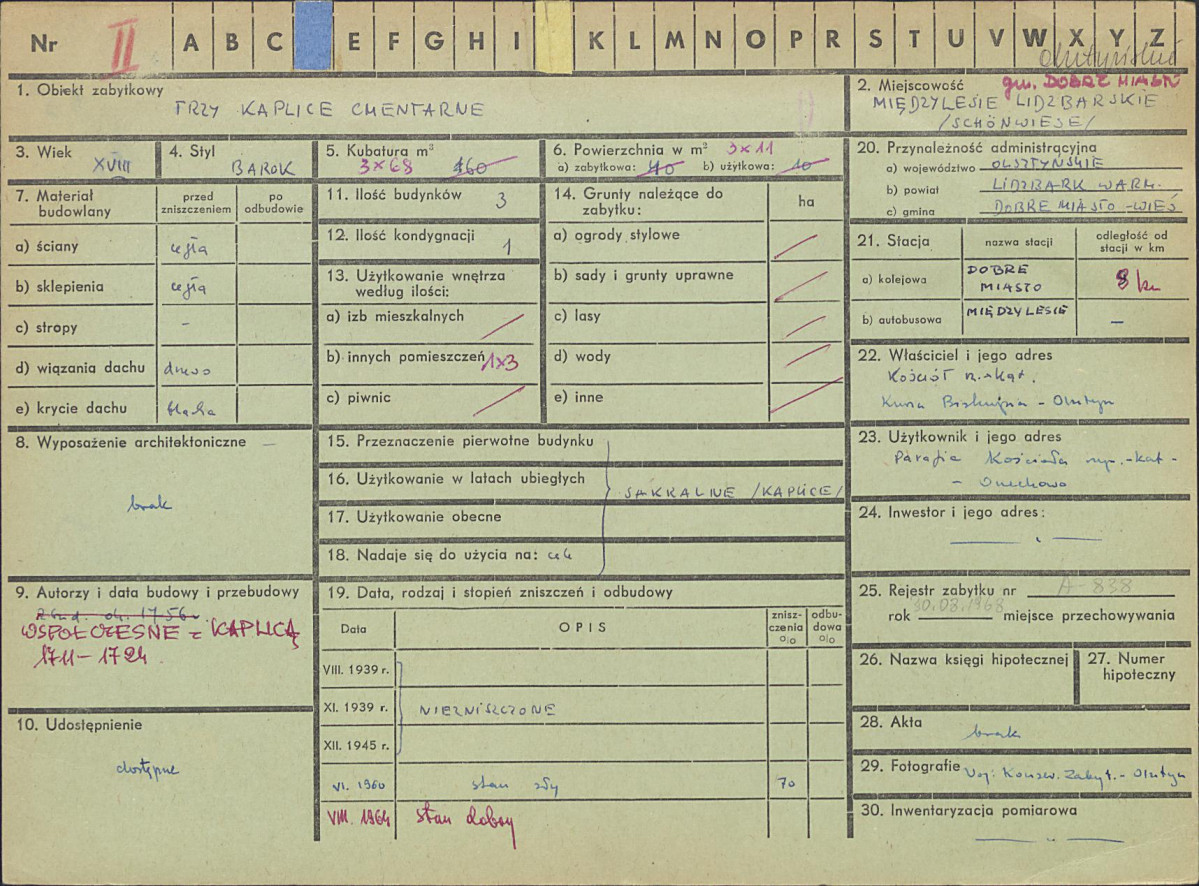 Nr II A B C E F G H I K L M N O P R S T U V W X Y Z
olsztyńskie
1. Obiekt zabytkowy
TRZY KAPLICE CMENTARNE
2. Miejscowość gm. DOBRE MIASTO
MIĘDZYLESIE LIDZBARSKIE
/SCHÖNWIESE/
3. Wiek
XVIII
4. Styl
BAROK
5. Kubatura m³
3×68 160
6. Powierzchnia w m² 3×11
a) zabytkowa: 40 b) użytkowa: 10
20. Przynależność administracyjna
a) województwo OLSZTYŃSKIE
b) powiat LIDZBARK WARM.
c) gmina DOBRE MIASTO - WIEŚ
7. Materiał budowlany
przed zniszczeniem
po odbudowie
a) ściany cegła
b) sklepienia cegła
c) stropy –
d) wiązania dachu drewo
e) krycie dachu blacha
11. Ilość budynków 3
12. Ilość kondygnacji 1
13. Użytkowanie wnętrza
według ilości:
a) izb mieszkalnych
b) innych pomieszczeń 1×3
c) piwnic
14. Grunty należące do
zabytku:
ha
a) ogrody stylowe
b) sady i grunty uprawne
c) lasy
d) wody
e) inne
21. Stacja
nazwa stacji
odległość od
stacji w km
a) kolejowa DOBRE MIASTO 8 km
b) autobusowa MIĘDZYLESIE –
22. Właściciel i jego adres
Kościół rz-kat.
Kuria Biskupia - Olsztyn
8. Wyposażenie architektoniczne –
brak
15. Przeznaczenie pierwotne budynku
16. Użytkowanie w latach ubiegłych
SAKRALNE /KAPLICE/
17. Użytkowanie obecne
18. Nadaje się do użycia na: cele
23. Użytkownik i jego adres
Parafia Kościoła rzym.-kat -
- Orzechowo
24. Inwestor i jego adres:
9. Autorzy i data budowy i przebudowy
Zbud. ok. 1756.
WSPÓŁCZESNE z KAPLICĄ
1711 – 1724.
19. Data, rodzaj i stopień zniszczeń i odbudowy
Data
OPIS
zniszczenia
0/0
odbudowa
0/0
VIII. 1939 r.
XI. 1939 r. NIEZNISZCZONE
XII. 1945 r.
VI. 1960 stan zły 70
VIII. 1964 stan dobry
25. Rejestr zabytku nr A-838
rok 30.03.1968 miejsce przechowywania
26. Nazwa księgi hipotecznej
27. Numer
hipoteczny
10. Udostępnienie
dostępne
28. Akta
brak
29. Fotografie Woj. Konserw. Zabyt. - Olsztyn
30. Inwentaryzacja pomiarowa